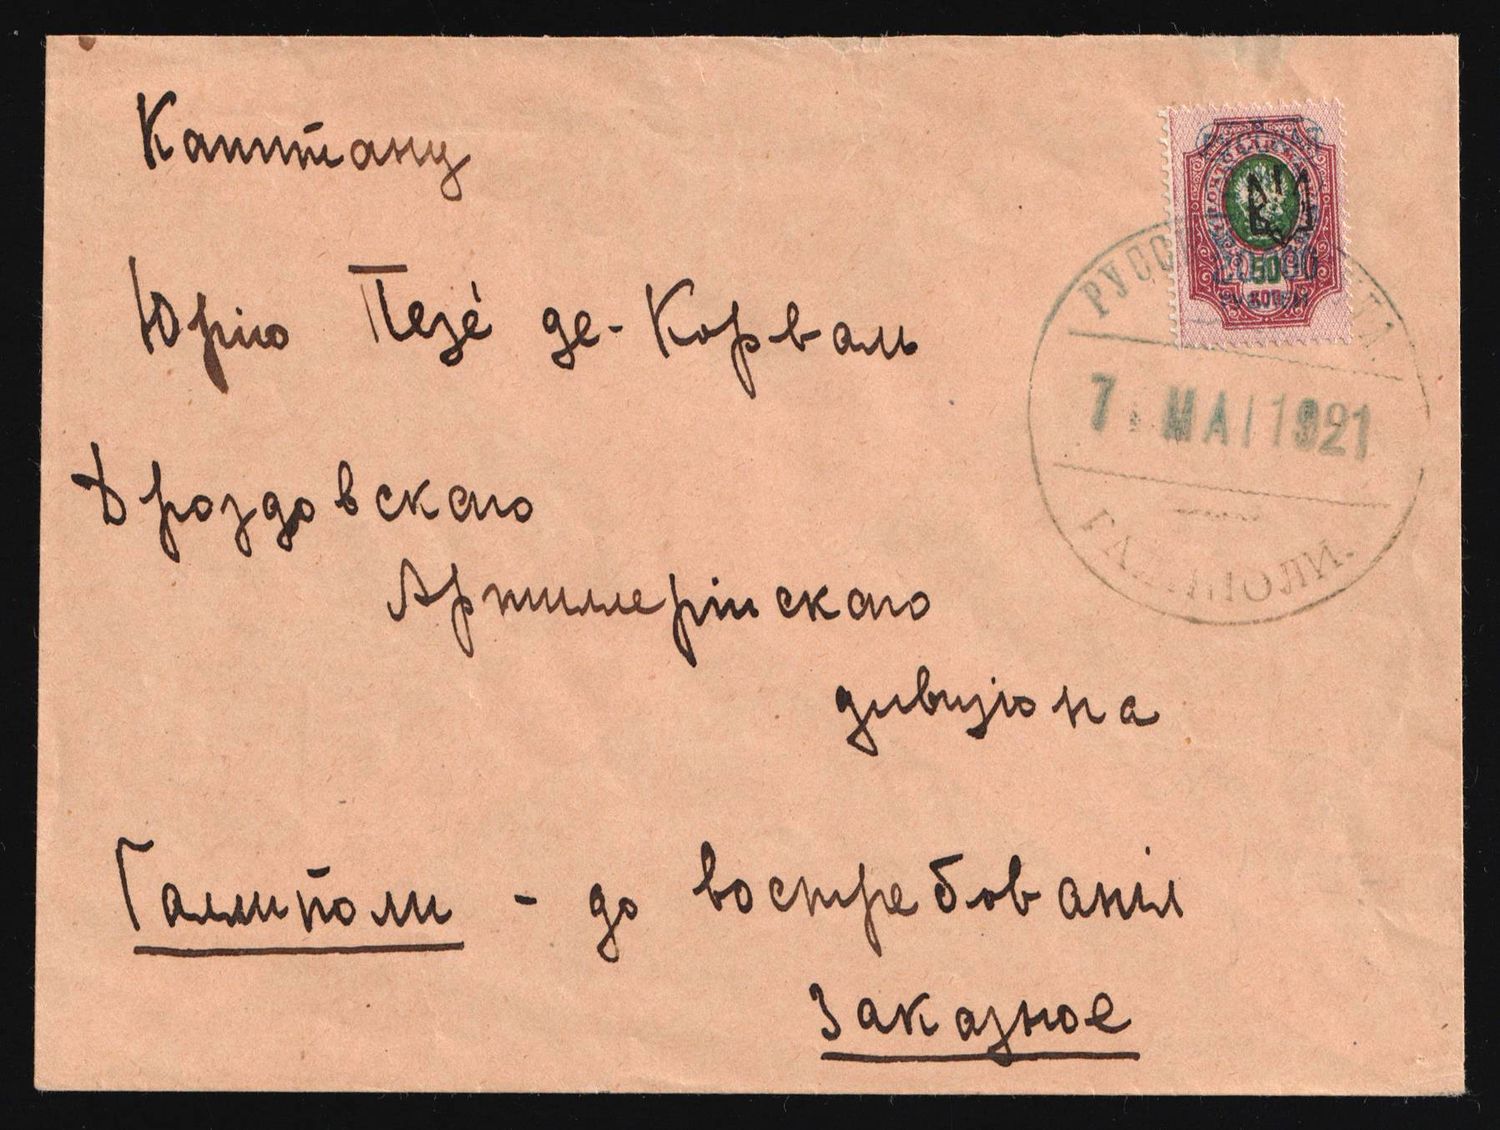 Капитану
Юрію Пезе́ де-Корваль
Дроздовскаго
Артиллерійскаго
дивизіона
Галлиполи - до востребованія
Заказное
50
7 MAI 1921
ГАЛЛИПОЛИ.